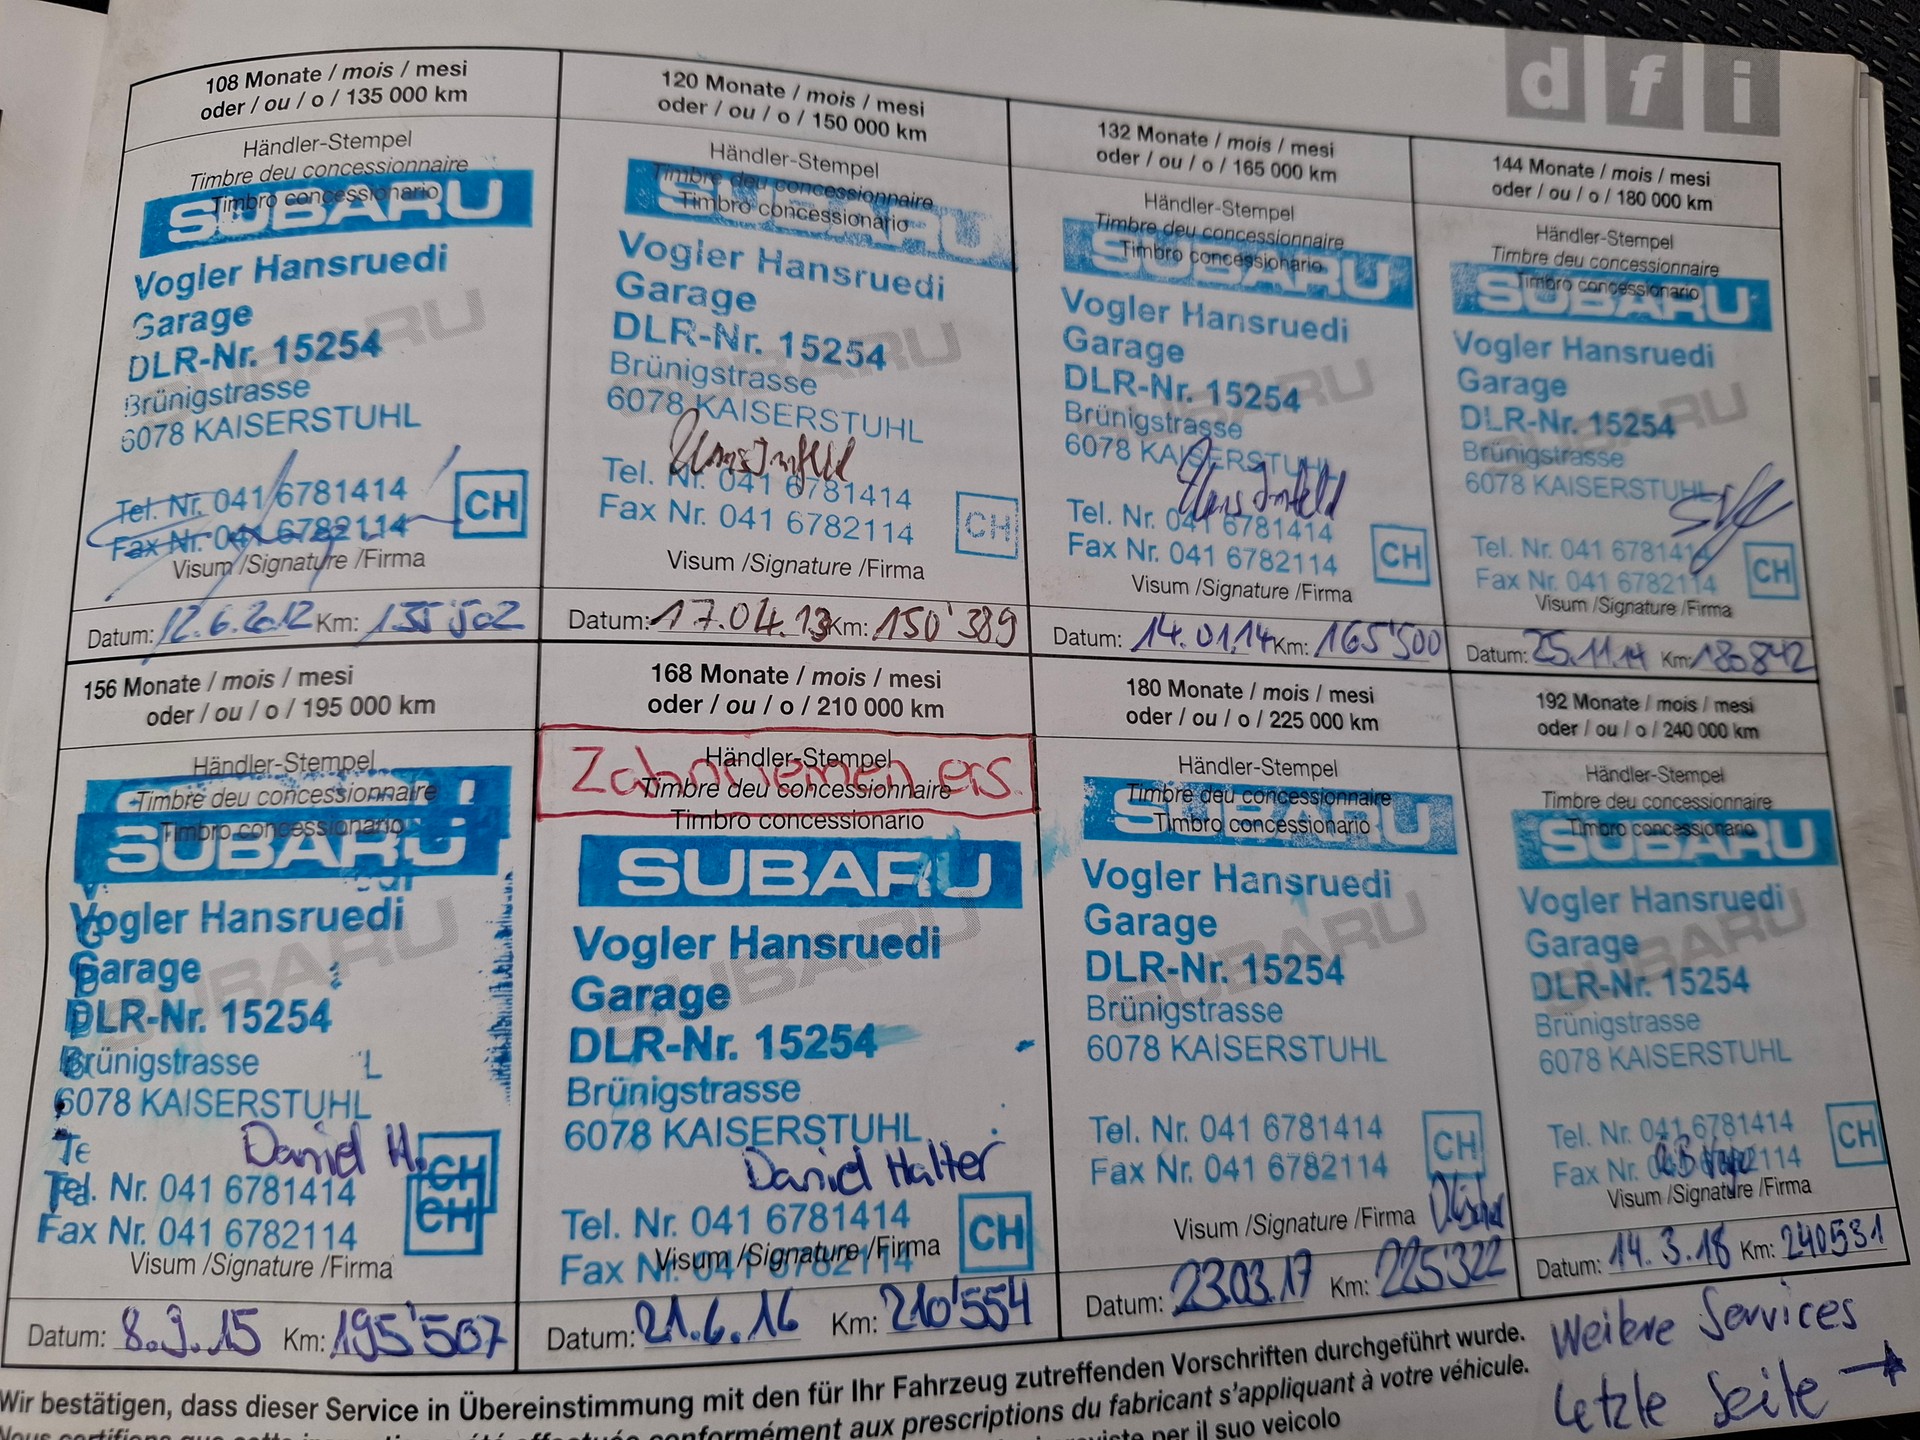 d f i
108 Monate / mois / mesi
oder / ou / o / 135 000 km
Händler-Stempel
Timbre deu concessionnaire
Timbro concessionario
SUBARU
Vogler Hansruedi
Garage
DLR-Nr. 15254
Brünigstrasse
6078 KAISERSTUHL
Tel. Nr. 041 6781414
Fax Nr. 041 6782114
CH
Visum /Signature /Firma
Datum: 12.6.2012 Km: 135'502
120 Monate / mois / mesi
oder / ou / o / 150 000 km
Händler-Stempel
Timbre deu concessionnaire
Timbro concessionario
SUBARU
Vogler Hansruedi
Garage
DLR-Nr. 15254
Brünigstrasse
6078 KAISERSTUHL
Tel. Nr. 041 6781414
Fax Nr. 041 6782114
CH
Visum /Signature /Firma
Datum: 17.04.13 Km: 150'389
132 Monate / mois / mesi
oder / ou / o / 165 000 km
Händler-Stempel
Timbre deu concessionnaire
Timbro concessionario
SUBARU
Vogler Hansruedi
Garage
DLR-Nr. 15254
Brünigstrasse
6078 KAISERSTUHL
Tel. Nr. 041 6781414
Fax Nr. 041 6782114
CH
Visum /Signature /Firma
Datum: 14.01.14 Km: 165'500
144 Monate / mois / mesi
oder / ou / o / 180 000 km
Händler-Stempel
Timbre deu concessionnaire
Timbro concessionario
SUBARU
Vogler Hansruedi
Garage
DLR-Nr. 15254
Brünigstrasse
6078 KAISERSTUHL
Tel. Nr. 041 6781414
Fax Nr. 041 6782114
CH
Visum /Signature /Firma
Datum: 25.11.14 Km: 180842
156 Monate / mois / mesi
oder / ou / o / 195 000 km
Händler-Stempel
Timbre deu concessionnaire
Timbro concessionario
SUBARU
Vogler Hansruedi
Garage
DLR-Nr. 15254
Brünigstrasse
6078 KAISERSTUHL
Daniel H.
Tel. Nr. 041 6781414
Fax Nr. 041 6782114
CH
Visum /Signature /Firma
Datum: 8.9.15 Km: 195'507
168 Monate / mois / mesi
oder / ou / o / 210 000 km
Zahnriemen ers.
Händler-Stempel
Timbre deu concessionnaire
Timbro concessionario
SUBARU
Vogler Hansruedi
Garage
DLR-Nr. 15254
Brünigstrasse
6078 KAISERSTUHL
Daniel Halter
Tel. Nr. 041 6781414
Fax Nr. 041 6782114
CH
Visum /Signature /Firma
Datum: 21.6.16 Km: 210'554
180 Monate / mois / mesi
oder / ou / o / 225 000 km
Händler-Stempel
Timbre deu concessionnaire
Timbro concessionario
SUBARU
Vogler Hansruedi
Garage
DLR-Nr. 15254
Brünigstrasse
6078 KAISERSTUHL
Tel. Nr. 041 6781414
Fax Nr. 041 6782114
CH
Visum /Signature /Firma
Datum: 23.03.17 Km: 225'322
192 Monate / mois / mesi
oder / ou / o / 240 000 km
Händler-Stempel
Timbre deu concessionnaire
Timbro concessionario
SUBARU
Vogler Hansruedi
Garage
DLR-Nr. 15254
Brünigstrasse
6078 KAISERSTUHL
Tel. Nr. 041 6781414
Fax Nr. 041 6782114
CH
Visum /Signature /Firma
Datum: 14.3.18 Km: 240531
Weitere Services
Letzte Seite →
Wir bestätigen, dass dieser Service in Übereinstimmung mit den für Ihr Fahrzeug zutreffenden Vorschriften durchgeführt wurde.
conformément aux prescriptions du fabricant s'appliquant à votre véhicule.
per il suo veicolo